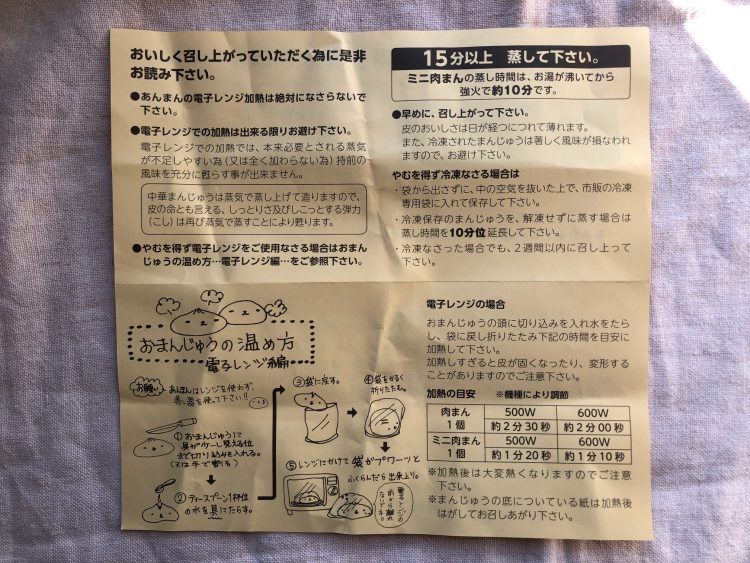 おいしく召し上がっていただく為に是非
お読み下さい。
●あんまんの電子レンジ加熱は絶対になさらないで
下さい。
●電子レンジでの加熱は出来る限りお避け下さい。
電子レンジでの加熱では、本来必要とされる蒸気
が不足しやすい為(又は全く加わらない為)持前の
風味を充分に甦らす事が出来ません。
中華まんじゅうは蒸気で蒸し上げて造りますので、
皮の命とも言える、しっとりさ及びしこっとする弾力
(こし)は再び蒸気で蒸すことにより甦ります。
●やむを得ず電子レンジをご使用なさる場合はおまん
じゅうの温め方…電子レンジ編…をご参照下さい。
15分以上 蒸して下さい。
ミニ肉まんの蒸し時間は、お湯が沸いてから
強火で約10分です。
●早めに、召し上がって下さい。
皮のおいしさは日が経つにつれて薄れます。
また、冷凍されたまんじゅうは著しく風味が損なわれ
ますので、お避け下さい。
やむを得ず冷凍なさる場合は
・袋から出さずに、中の空気を抜いた上で、市販の冷凍
専用袋に入れて保存して下さい。
・冷凍保存のまんじゅうを、解凍せずに蒸す場合は
蒸し時間を10分位延長して下さい。
・冷凍なさった場合でも、2週間以内に召し上って
下さい。
おまんじゅうの温め方
電子レンジ編
お願い
あんまんはレンジを使わず、
蒸し器を使って下さい!!
①おまんじゅうに
具がケーし見える位
まで切り込みを入れる。
(又は手で割る)
②ティースプーン1杯位
の水を具にたらす。
③袋に戻す。
④袋をかるく
折りたたむ。
⑤レンジにかけて袋がプワーッと
ふくらんだら出来上り。
電子レンジの場合
おまんじゅうの頭に切り込みを入れ水をたら
し、袋に戻し折りたたみ下記の時間を目安に
加熱して下さい。
加熱しすぎると皮が固くなったり、変形する
ことがありますのでご注意下さい。
加熱の目安 ※機種により調節
肉まん 1個 500W 600W
約2分30秒 約2分00秒
ミニ肉まん 1個 500W 600W
約1分20秒 約1分10秒
※加熱後は大変熱くなりますのでご注意
下さい。
※まんじゅうの底についている紙は加熱後
はがしてお召しあがり下さい。